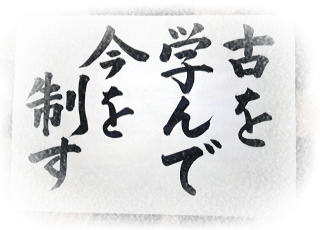 古を
学んで
今を
制す